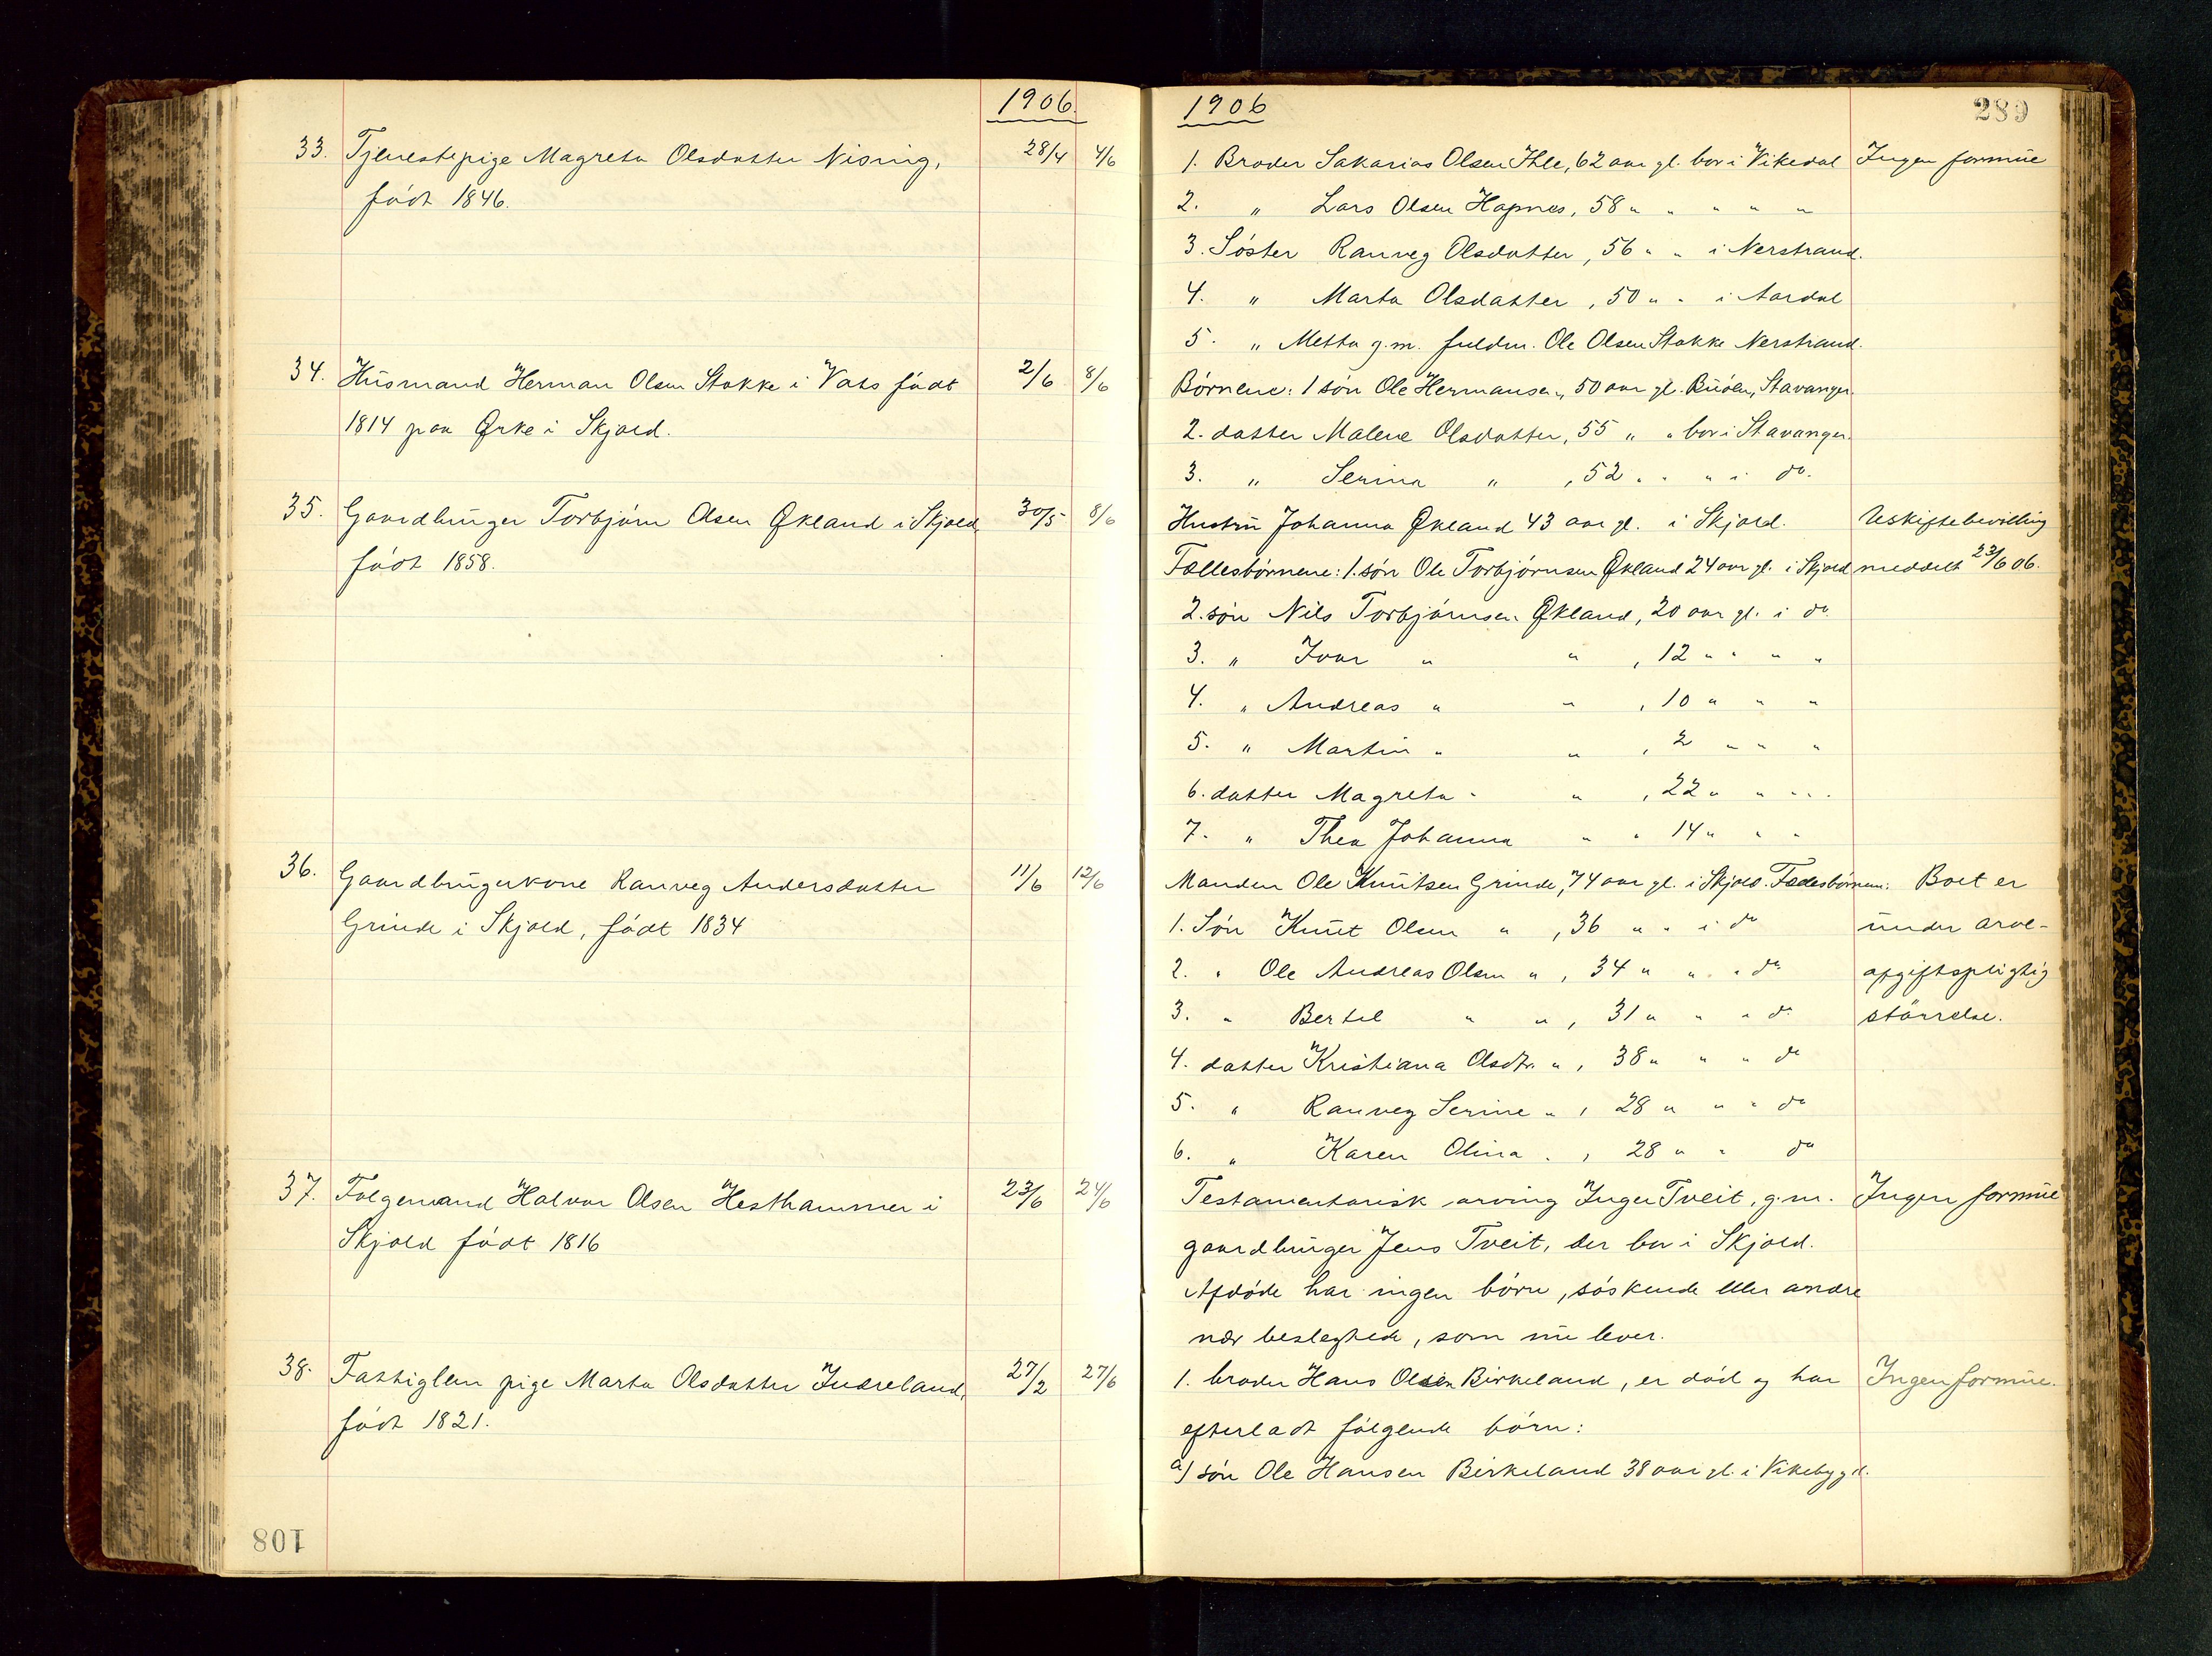 1906.
33. Tjenestepige Magreta Olsdatter Nising, 28/4 4/6
født 1846.
34. Husmand Herman Olsen Stokke i Vats født 2/6 8/6
1814 paa Ørke i Skjold.
35. Gaardbruger Torbjørn Olsen Økland i Skjold, 30/5 8/6
født 1858.
36. Gaardbrugerkone Ranveg Andersdatter 11/6 12/6
Grinde i Skjold, født 1834
37. Folgemand Halvor Olsen Hesthammer i 23/6 24/6
Skjold født 1816
38. Fattiglem pige Marta Olsdatter Indreland, 27/2 27/6
født 1821.
108
1906 289
1. Broder Sakarias Olsen Ihle, 62 aar gl. bor i Vikedal Ingen formue
2. " Lars Olsen Hapnes, 58 " " " " "
3. Søster Ranveg Olsdatter, 56 " " i Nerstrand.
4. " Marta Olsdatter, 50 " " i Aardal
5. " Metta g.m. fuldm. Ole Olsen Stokke Nerstrand.
Børnene: 1 søn Ole Hermansen, 50 aar gl. Buøen, Stavanger.
2. datter Malene Olsdatter, 55 " " bor i Stavanger.
3. " Serina " , 52 " " " i do.
Hustru Johanna Økland 43 aar gl. i Skjold. Uskiftebevilling
Fællesbørnene: 1. søn Ole Torbjørnsen Økland 24 aar gl. i Skjold meddelt 23/6 06.
2. søn Nils Torbjørnsen Økland, 20 aar gl. i do.
3. " Ivar " " , 12 " " " "
4. " Andreas " " , 10 " " "
5. " Martin " " , 2 " " "
6. datter Magreta " " , 22 " " " "
7. " Thea Johanna " " 14 " " "
Manden Ole Knutsen Grinde, 74 aar gl. i Skjold. Fællesbørnene: Boet er
1. Søn Knut Olsen " , 36 " " i do under arve-
2. " Ole Andreas Olsen " , 34 " " " do afgiftspligtig
3. " Bertel " " , 31 " " " do størrelse.
4. datter Kristiana Olsdtr. " , 38 " " " do
5. " Ranveg Serine " , 28 " " " do
6. " Karen Olina " , 28 " " do
Testamentarisk arving Inger Tveit, g.m. Ingen formue
gaardbruger Jens Tveit, der bor i Skjold.
Afdøde har ingen børn, søskende eller andre
nær beslegtede, som nu lever.
1. broder Hans Olsen Birkeland, er død og har Ingen formue.
efterladt følgende børn:
a) søn Ole Hansen Birkeland 38 aar gl. i Vikebygd.